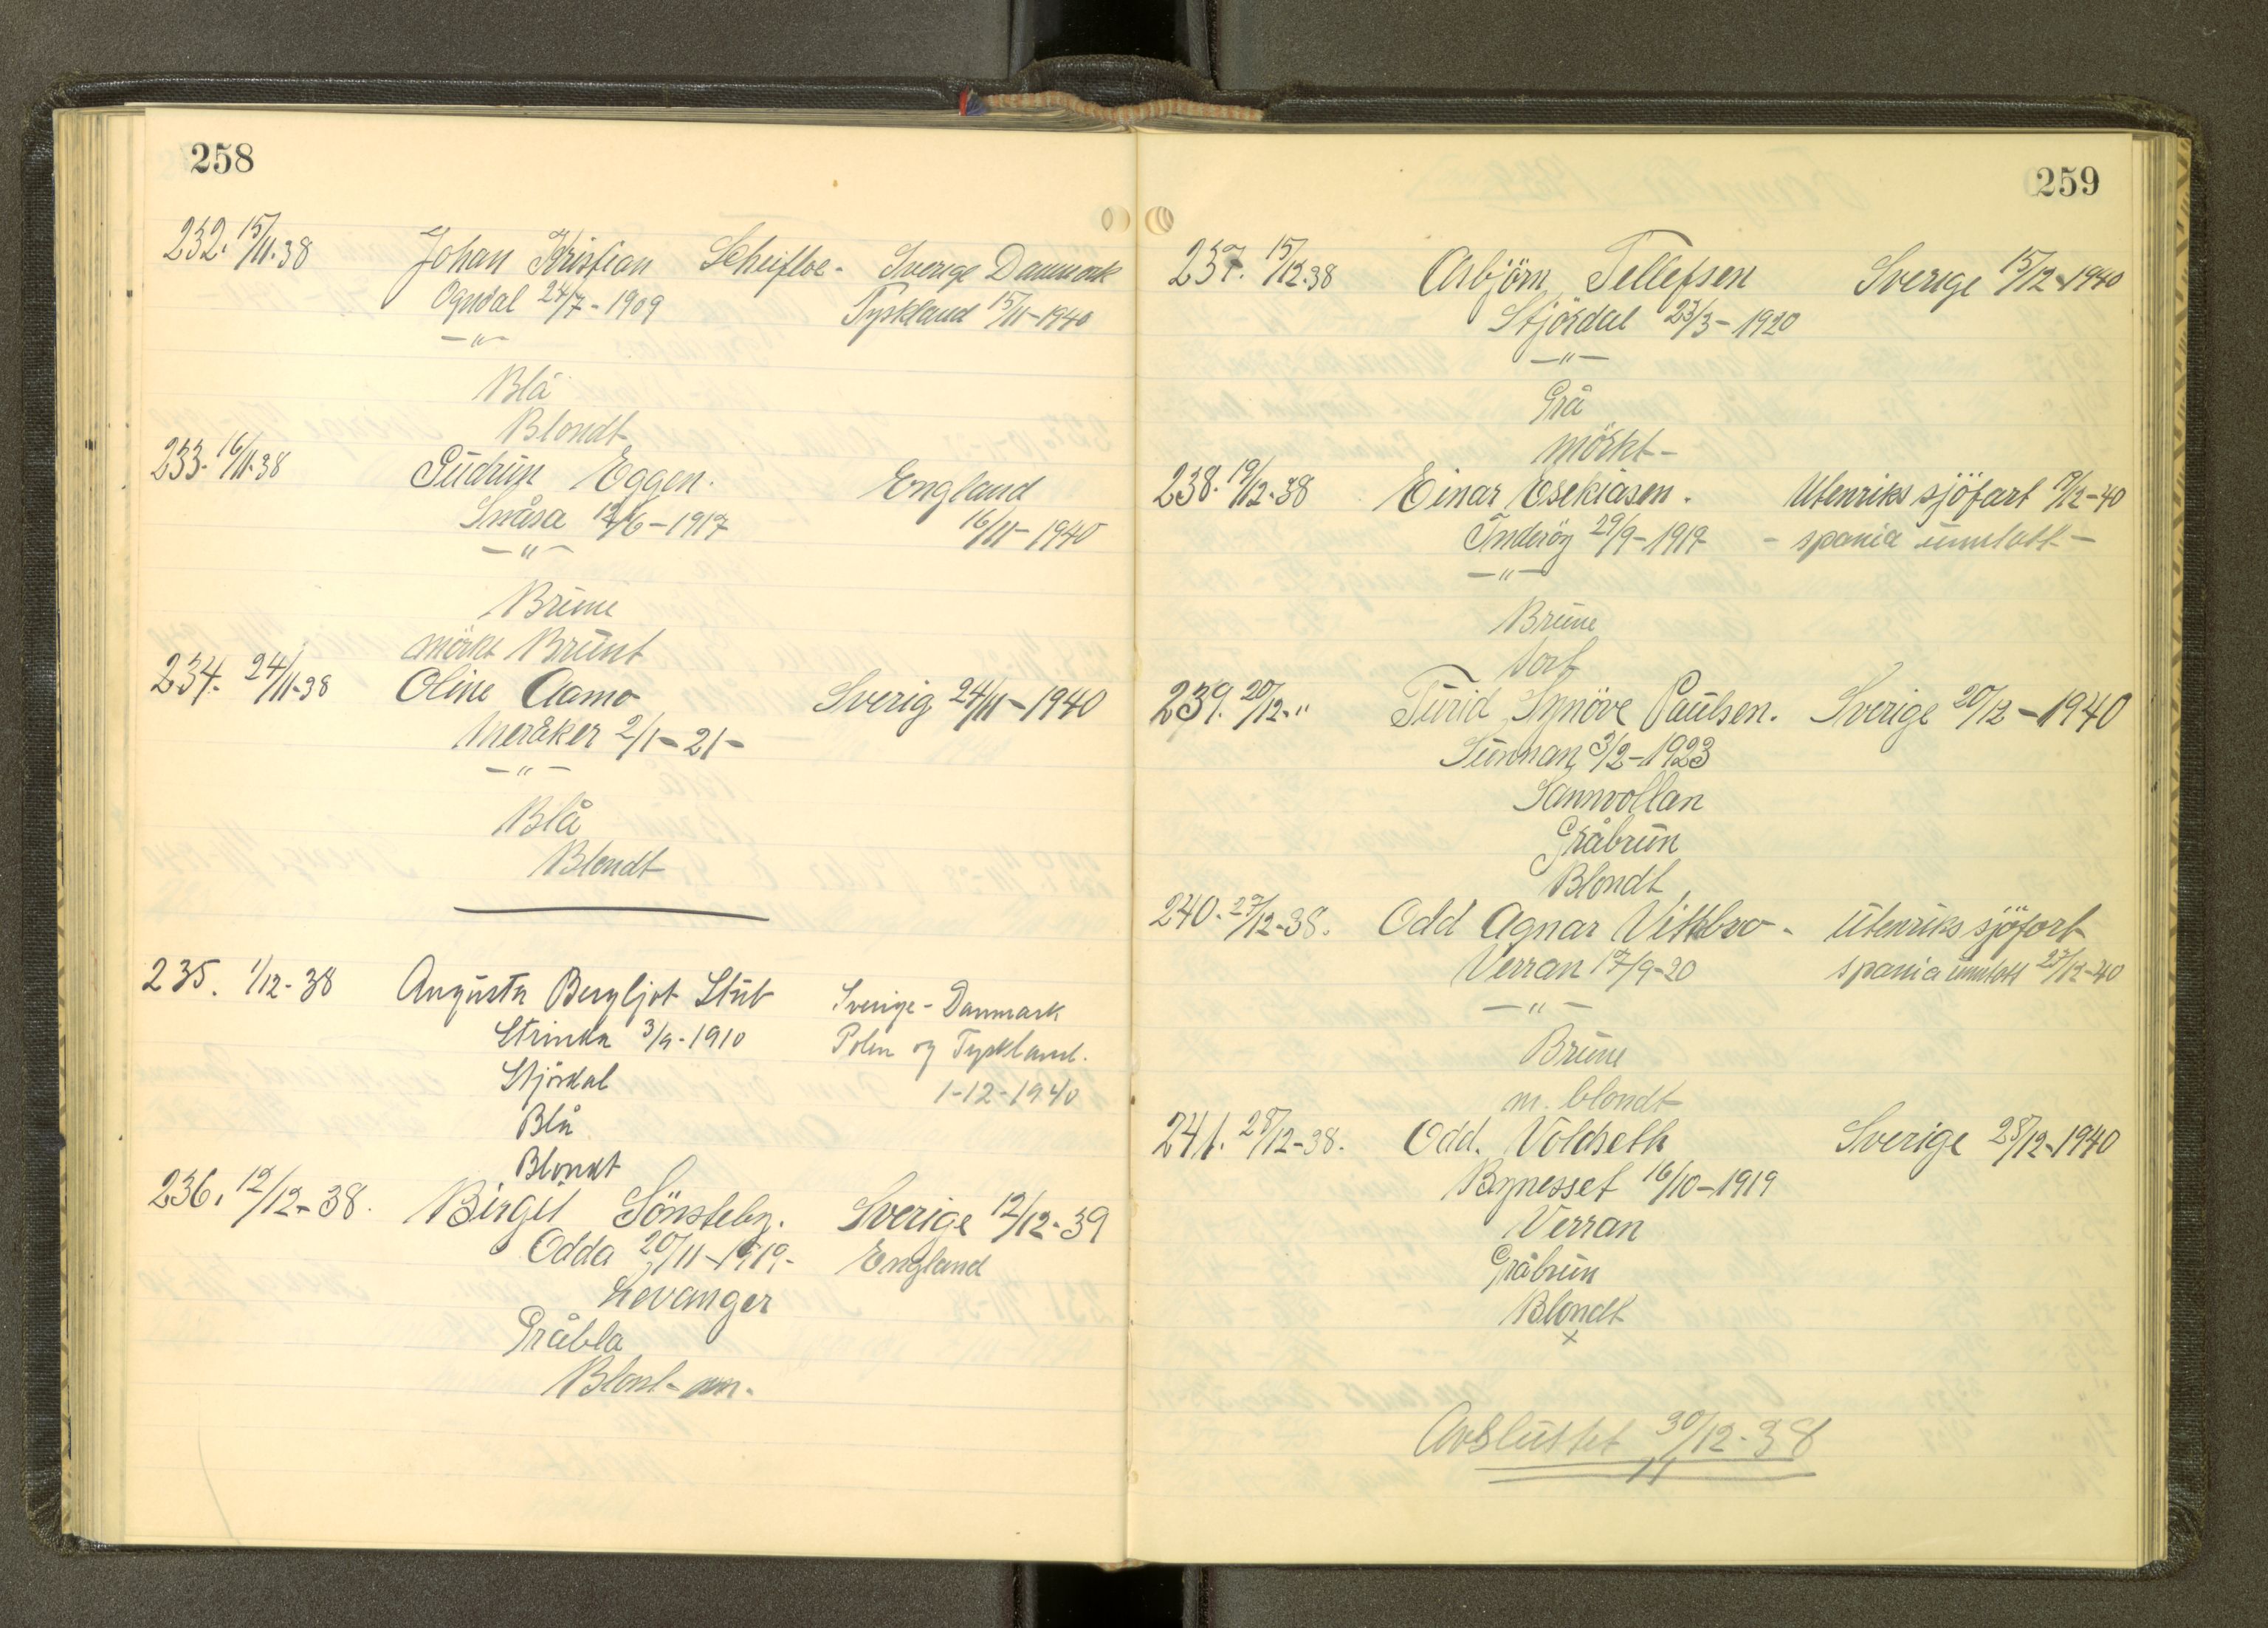 258
232. 15/11-38 Johan Kristian Scheifloe - Sverige Danmark
Ogndal 24/7 - 1909 Tyskland 15/11-1940
— " —
Blå
Blondt
233. 16/11-38 Gudrun Eggen. England
Snåsa 12/6-1917 16/11-1940
— " —
Brune
mörkt Brunt
234. 24/11-38 Oline Aamo Sverig 24/11-1940
Meråker 2/1-21-
— " —
Blå
Blondt
235. 1/12-38 Augusta Bergljot Stub Sverige - Danmark
Strinda 3/9-1910 Polen og Tyskland.
Stjørdal 1-12-1940
Blå
Blondt
236. 12/12-38. Birgit Sönsteby. Sverige 12/12-39
Odda 20/11-1919- England
Levanger
Gråbla
Blont-
259
237. 15/12.38 Asbjörn Tellefsen Sverige 15/12-1940
Stjördal 23/3-1920
— " —
Grå
mörkt-
238. 19/12-38 Einar Esekiasen. Utenriks sjöfart 19/12-40
Inderöy 29/9-1919 - spania unntatt -
— " —
Brune
sort
239. 20/12-" Turid Synöve Paulsen. Sverige 20/12-1940
Sunnan 3/2-1923
Sannvollan
Gråbrun
Blondt
240. 27/12-38. Odd Agnar Vitkbro - Utenriks sjöfort
Verran 17/9-20 spania unntatt 27/12-40
— " —
Brune
m. blondt
241. 28/12-38. Odd. Voldseth Sverige 28/12-1940
Bynesset 16/10-1919
Verran
Gråbrun
Blondt
x
Avsluttet 30/12-38